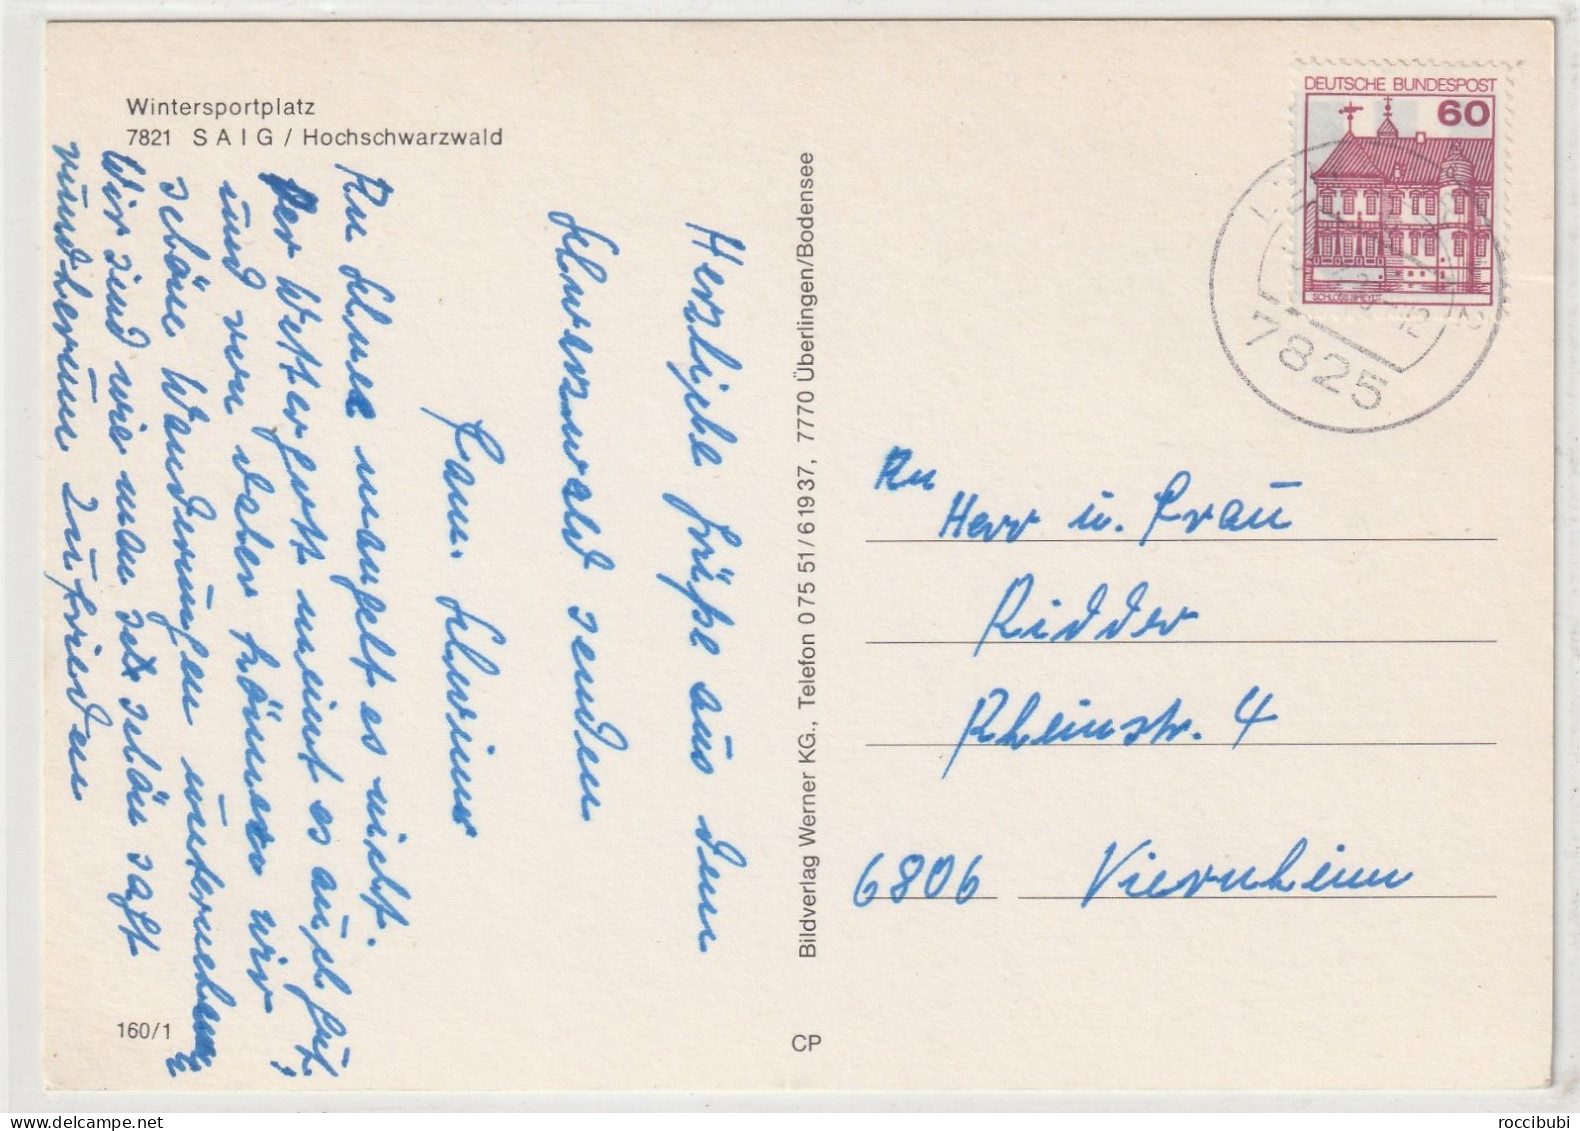 Wintersportplatz
7821 SAIG / Hochschwarzwald
Herzliche Grüße aus dem
Schwarzwald senden
Fam. Schwinn
An Schnee mangelt es nicht.
Der Wettergott meint es auch gut,
und von daher können wir
schöne Wanderungen unternehmen
Wir sind wie man so schön sagt
rundherum zufrieden
160/1
Bildverlag Werner KG., Telefon 0 75 51/6 19 37, 7770 Überlingen/Bodensee
CP
DEUTSCHE BUNDESPOST
60
SCHLOSS RHEYDT
7825
An
Herr u. Frau
Ridder
Rheinstr. 4
6806 Viernheim
roccibubi